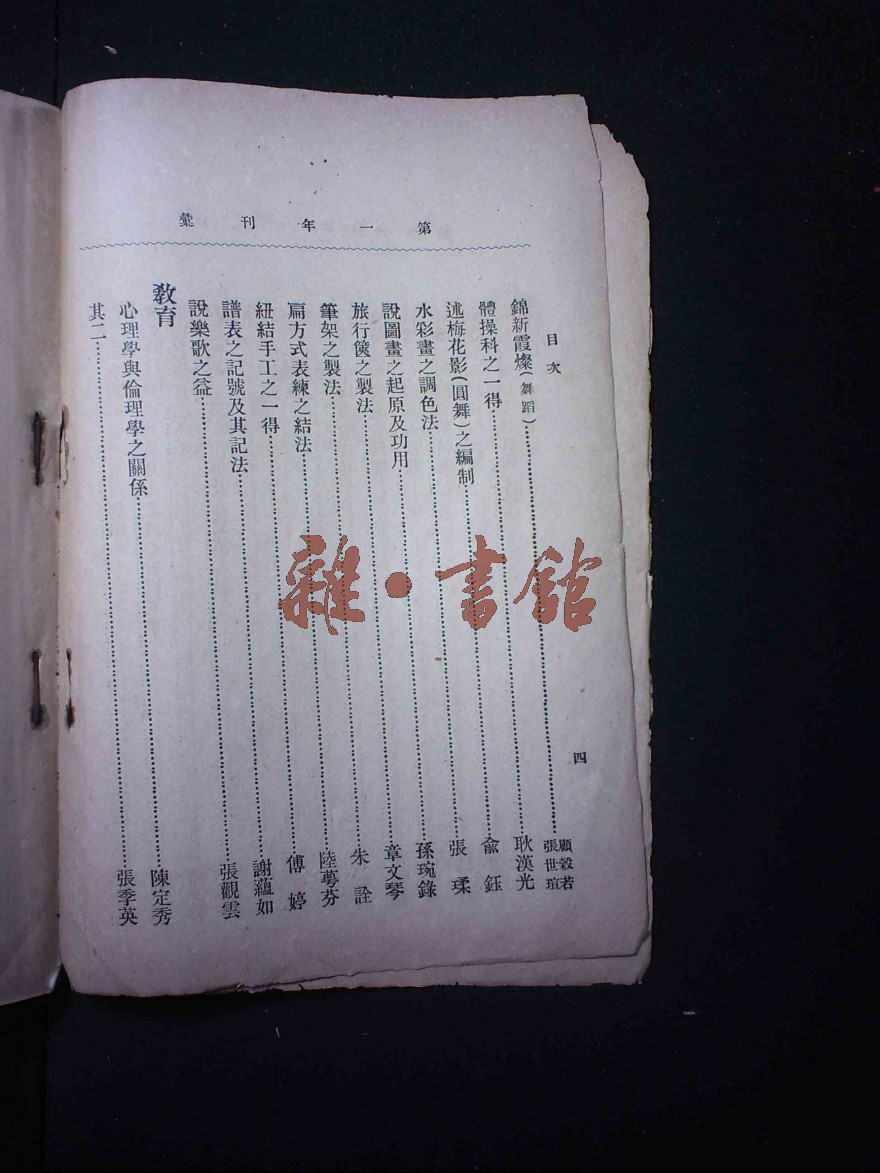 第一年刊彙
目次 四
錦新霞燦(舞蹈)……顧穀若 張世瑄
體操科之一得……耿漢光
述梅花影(圓舞)之編制……俞鈺
水彩畫之調色法……張瑈
說圖畫之起原及功用……孫琬錄
旅行篋之製法……章文琴
筆架之製法……朱詮
扁方式表練之結法……陸蕚芬
紐結手工之一得……傅婷
譜表之記號及其記法……謝蘊如
說樂歌之益……張觀雲
教育
心理學與倫理學之關係……陳定秀
其二……張季英
雜·書館